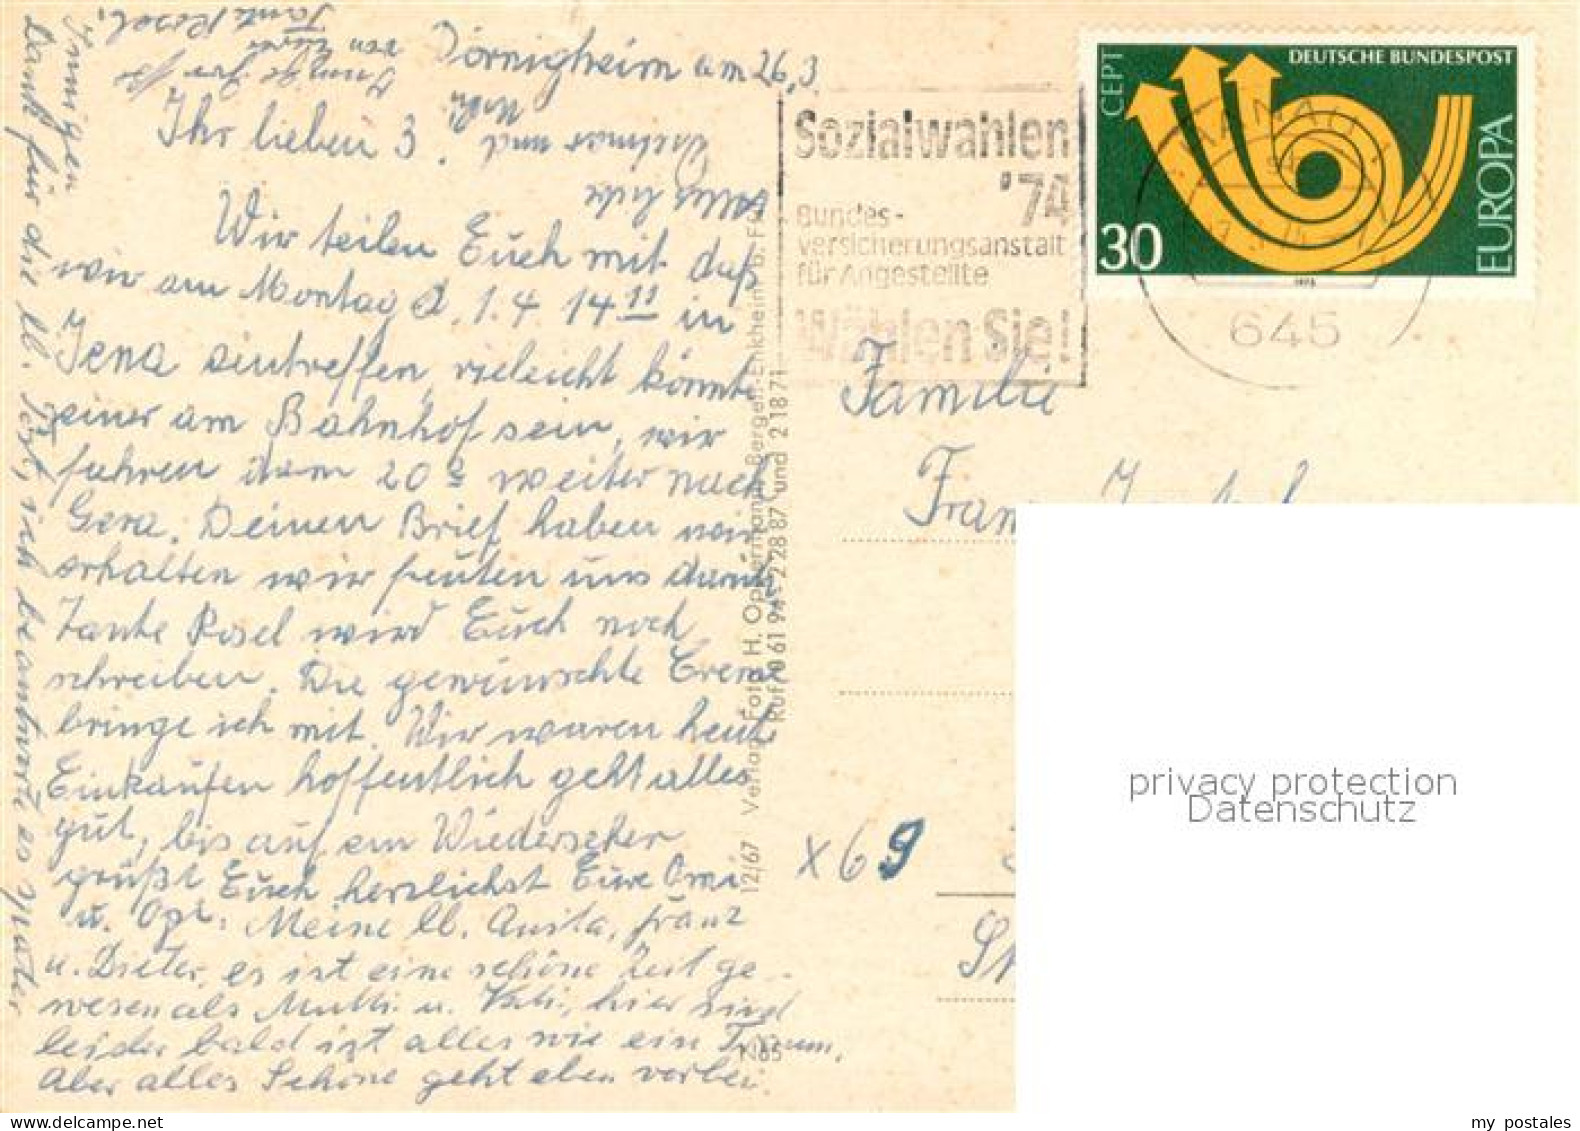 Dörnigheim am 26.3.
Ihr lieben 3.
Wir teilen Euch mit daß
wir am Montag d. 1.4 14 11 in
Jena eintreffen, vieleicht könnte
einer am Bahnhof sein, wir
fahren dann 20 2 weiter nach
Gera. Deinen Brief haben wir
erhalten wir freuten uns darüber
Tante Rosel wird Euch noch
schreiben. Die gewünschte Creme
bringe ich mit. Wir waren heute
Einkaufen hoffentlich geht alles
gut, bis auf ein Wiedersehen
grüßt Euch herzlichst Eure Omi
u. Opi. Meine lb. Anita, Franz
u. Dieter, es ist eine schöne Zeit ge-
wesen als Mutti u. Vati hier sind
leider bald ist alles wie ein Traum.
Aber alles Schöne geht eben vorbei.
Dank für die lb. Post, ich beantworte es später
Innigen
Alles liebe
und
Innige
von Eurer
Tante Rosel.
Sozialwahlen
'74
Bundes-
versicherungsanstalt
für Angestellte
Wählen Sie!
DEUTSCHE BUNDESPOST
CEPT
EUROPA
30
HANAU 1
645
Familie
Franz
x 69
12/67 Verlag Foto H. Oppermann Bergen-Enkheim b. Ffm
Ruf 0 61 94 - 2 28 87 und 2 18 71
N65
privacy protection
Datenschutz
my postales